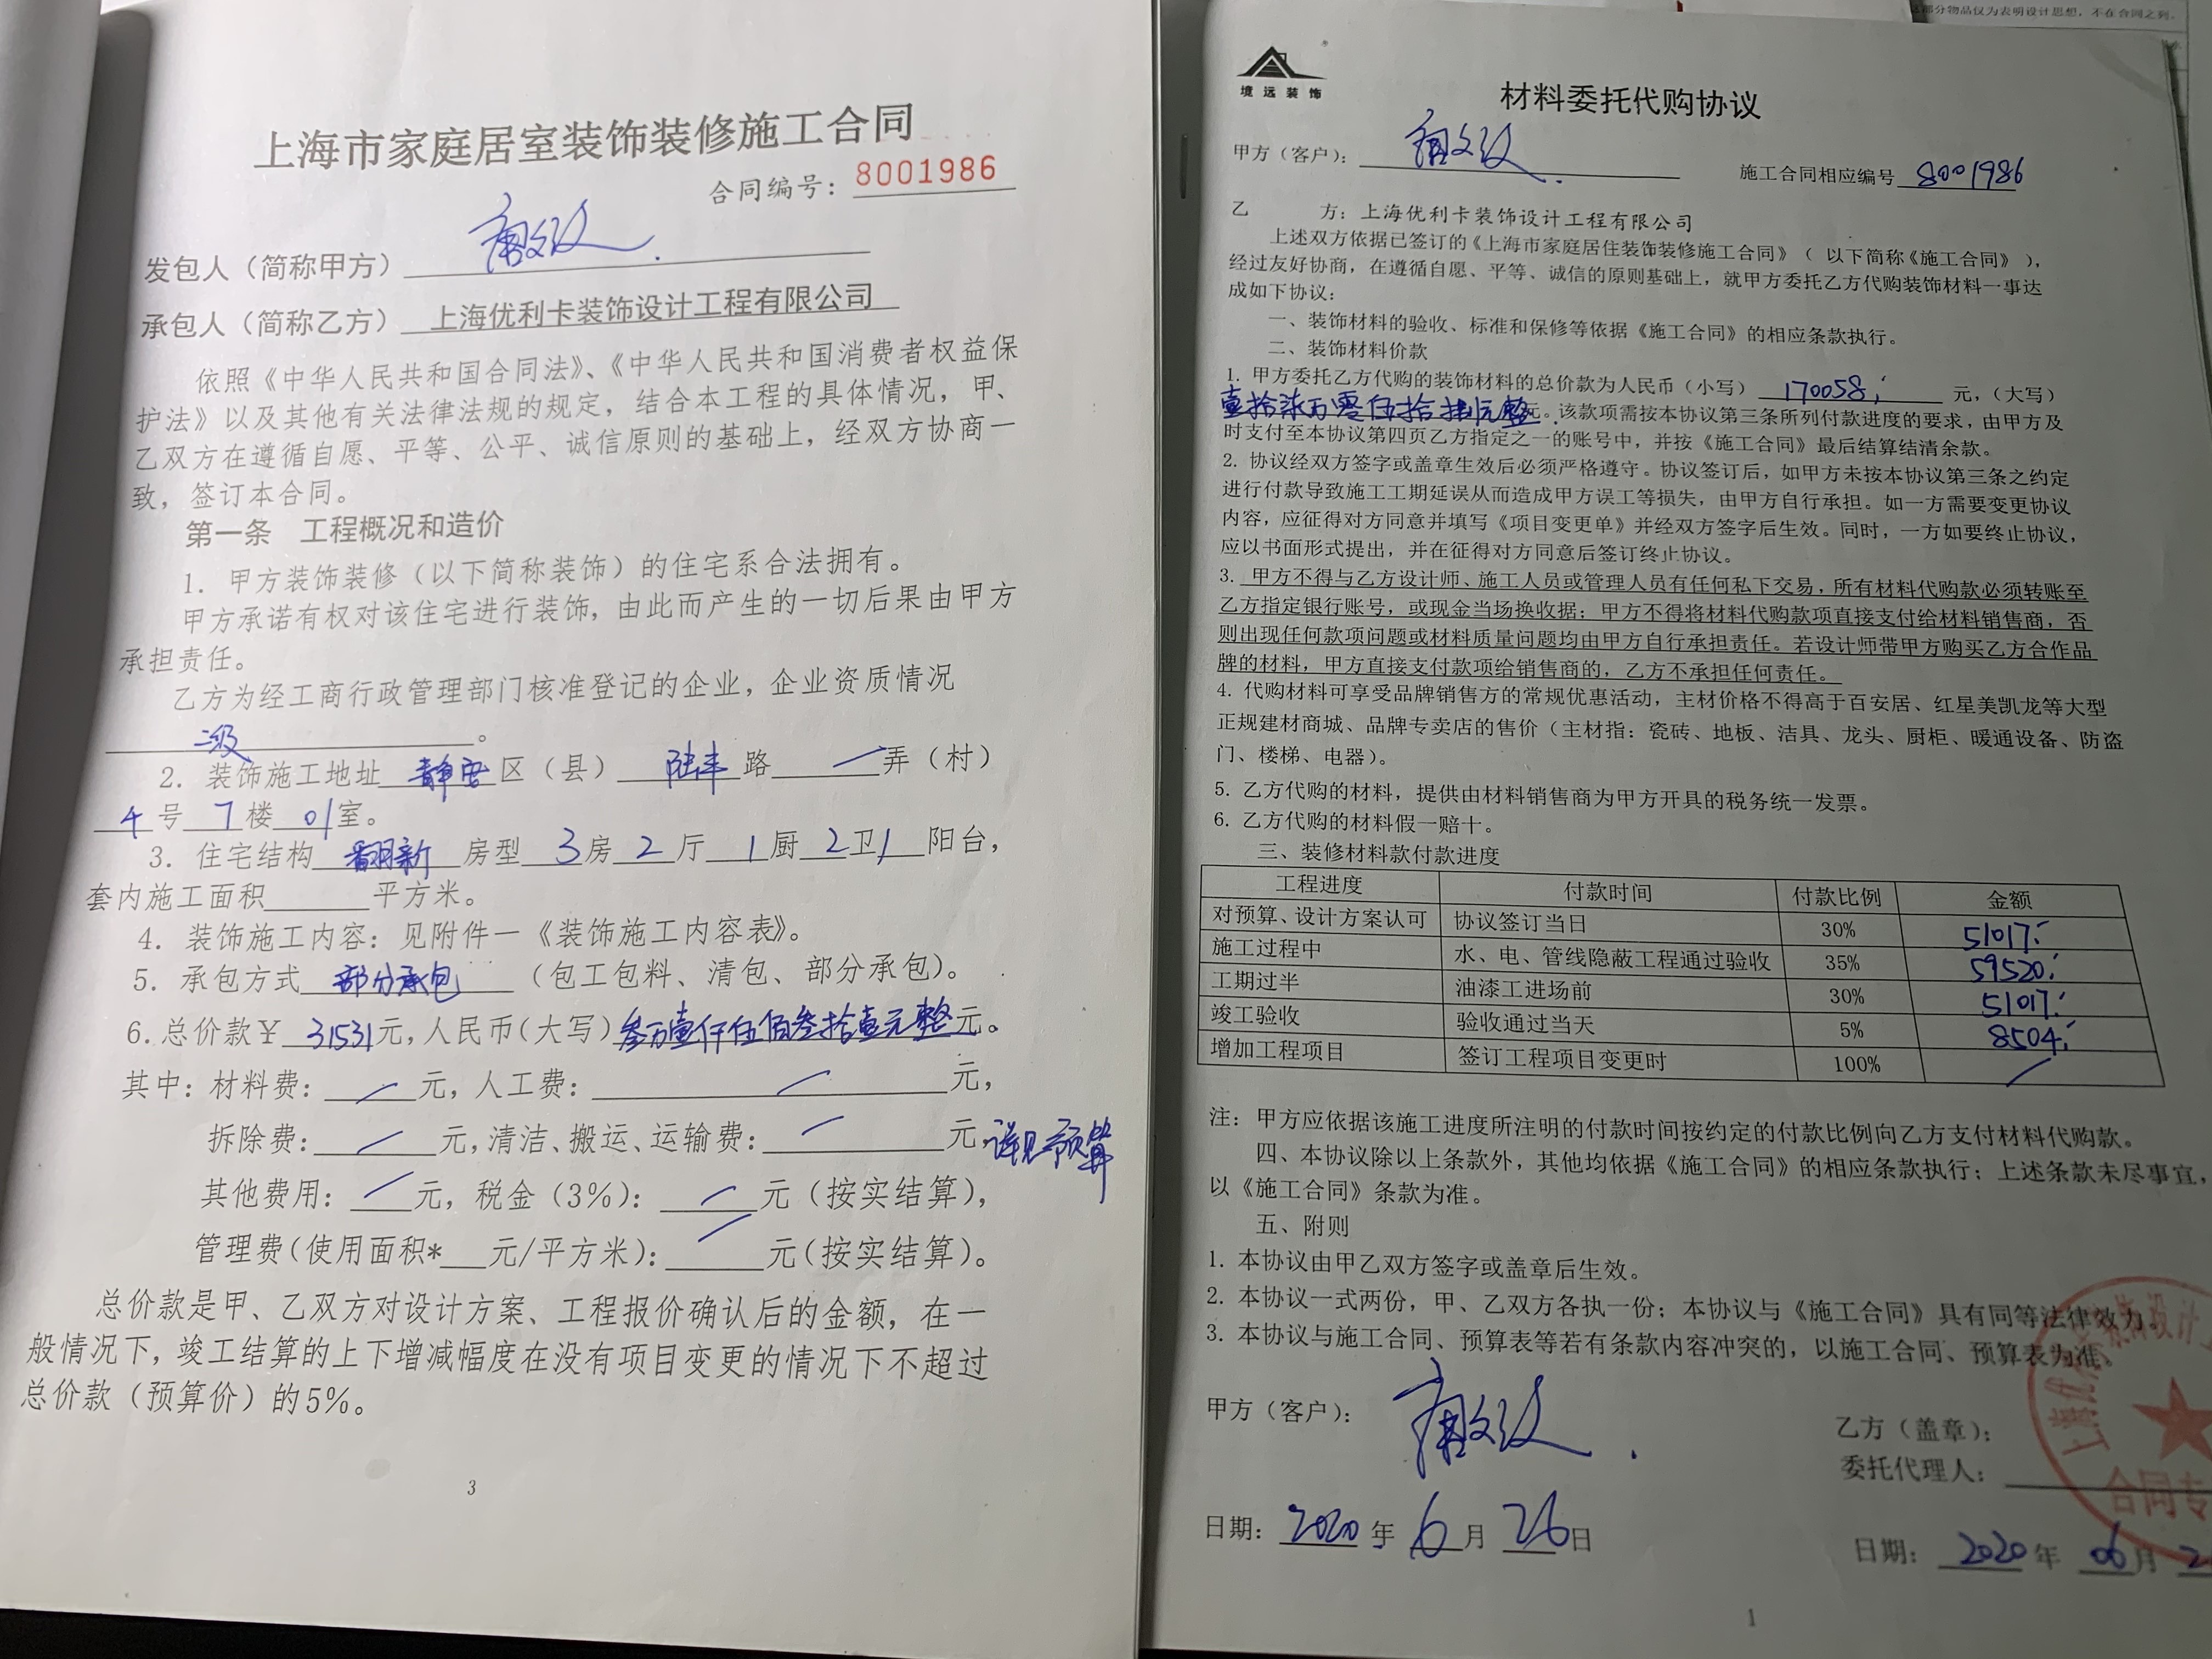 上海市家庭居室装饰装修施工合同
合同编号：8001986
发包人（简称甲方）
承包人（简称乙方）上海优利卡装饰设计工程有限公司
依照《中华人民共和国合同法》、《中华人民共和国消费者权益保
护法》以及其他有关法律法规的规定，结合本工程的具体情况，甲、
乙双方在遵循自愿、平等、公平、诚信原则的基础上，经双方协商一
致，签订本合同。
第一条 工程概况和造价
1. 甲方装饰装修（以下简称装饰）的住宅系合法拥有。
甲方承诺有权对该住宅进行装饰，由此而产生的一切后果由甲方
承担责任。
乙方为经工商行政管理部门核准登记的企业，企业资质情况
二级。
2. 装饰施工地址 静安 区（县） 陆丰 路 一 弄（村）
4 号 7 楼 01 室。
3. 住宅结构 翻新 房型 3 房 2 厅 1 厨 2 卫 1 阳台，
套内施工面积 平方米。
4. 装饰施工内容：见附件一《装饰施工内容表》。
5. 承包方式 部分承包 （包工包料、清包、部分承包）。
6. 总价款¥ 31531 元，人民币（大写）叁万壹仟伍佰叁拾壹元整元。
其中：材料费： 元，人工费： 元，
拆除费： 元，清洁、搬运、运输费： 元，详见预算
其他费用： 元，税金（3%）： 元（按实结算），
管理费（使用面积* 元/平方米）： 元（按实结算）。
总价款是甲、乙双方对设计方案、工程报价确认后的金额，在一
般情况下，竣工结算的上下增减幅度在没有项目变更的情况下不超过
总价款（预算价）的5%。
3
部分物品仅为表明设计思想，不在合同之列。
境远装饰
材料委托代购协议
甲方（客户）：
施工合同相应编号 8001986
乙 方：上海优利卡装饰设计工程有限公司
上述双方依据已签订的《上海市家庭居住装饰装修施工合同》（ 以下简称《施工合同》），
经过友好协商，在遵循自愿、平等、诚信的原则基础上，就甲方委托乙方代购装饰材料一事达
成如下协议：
一、装饰材料的验收、标准和保修等依据《施工合同》的相应条款执行。
二、装饰材料价款
1. 甲方委托乙方代购的装饰材料的总价款为人民币（小写） 170058 元，（大写）
壹拾柒万零伍拾捌元整元。该款项需按本协议第三条所列付款进度的要求，由甲方及
时支付至本协议第四页乙方指定之一的账号中，并按《施工合同》最后结算结清余款。
2. 协议经双方签字或盖章生效后必须严格遵守。协议签订后，如甲方未按本协议第三条之约定
进行付款导致施工工期延误从而造成甲方误工等损失，由甲方自行承担。如一方需要变更协议
内容，应征得对方同意并填写《项目变更单》并经双方签字后生效。同时，一方如要终止协议，
应以书面形式提出，并在征得对方同意后签订终止协议。
3. 甲方不得与乙方设计师、施工人员或管理人员有任何私下交易，所有材料代购款必须转账至
乙方指定银行账号，或现金当场换收据；甲方不得将材料代购款项直接支付给材料销售商，否
则出现任何款项问题或材料质量问题均由甲方自行承担责任。若设计师带甲方购买乙方合作品
牌的材料，甲方直接支付款项给销售商的，乙方不承担任何责任。
4. 代购材料可享受品牌销售方的常规优惠活动，主材价格不得高于百安居、红星美凯龙等大型
正规建材商城、品牌专卖店的售价（主材指：瓷砖、地板、洁具、龙头、厨柜、暖通设备、防盗
门、楼梯、电器）。
5. 乙方代购的材料，提供由材料销售商为甲方开具的税务统一发票。
6. 乙方代购的材料假一赔十。
三、装修材料款付款进度
工程进度 付款时间 付款比例 金额
对预算、设计方案认可 协议签订当日 30% 51017
施工过程中 水、电、管线隐蔽工程通过验收 35% 59520
工期过半 油漆工进场前 30% 51017
竣工验收 验收通过当天 5% 8504
增加工程项目 签订工程项目变更时 100%
注：甲方应依据该施工进度所注明的付款时间按约定的付款比例向乙方支付材料代购款。
四、本协议除以上条款外，其他均依据《施工合同》的相应条款执行；上述条款未尽事宜，
以《施工合同》条款为准。
五、附则
1. 本协议由甲乙双方签字或盖章后生效。
2. 本协议一式两份，甲、乙双方各执一份；本协议与《施工合同》具有同等法律效力。
3. 本协议与施工合同、预算表等若有条款内容冲突的，以施工合同、预算表为准。
甲方（客户）：
乙方（盖章）：
委托代理人：
合同专
日期：2020 年 6 月 26 日
日期：2020 年 06 月
1